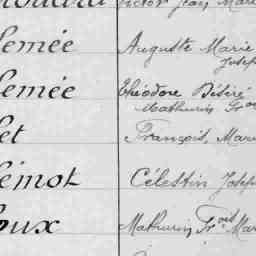 Victor Jean Marie
émée Auguste Marie
Joseph
émée Théodore Désiré
Mathurin Fr
et François, Mari
émot Célestin Josep
oux Mathurin Fr Mar